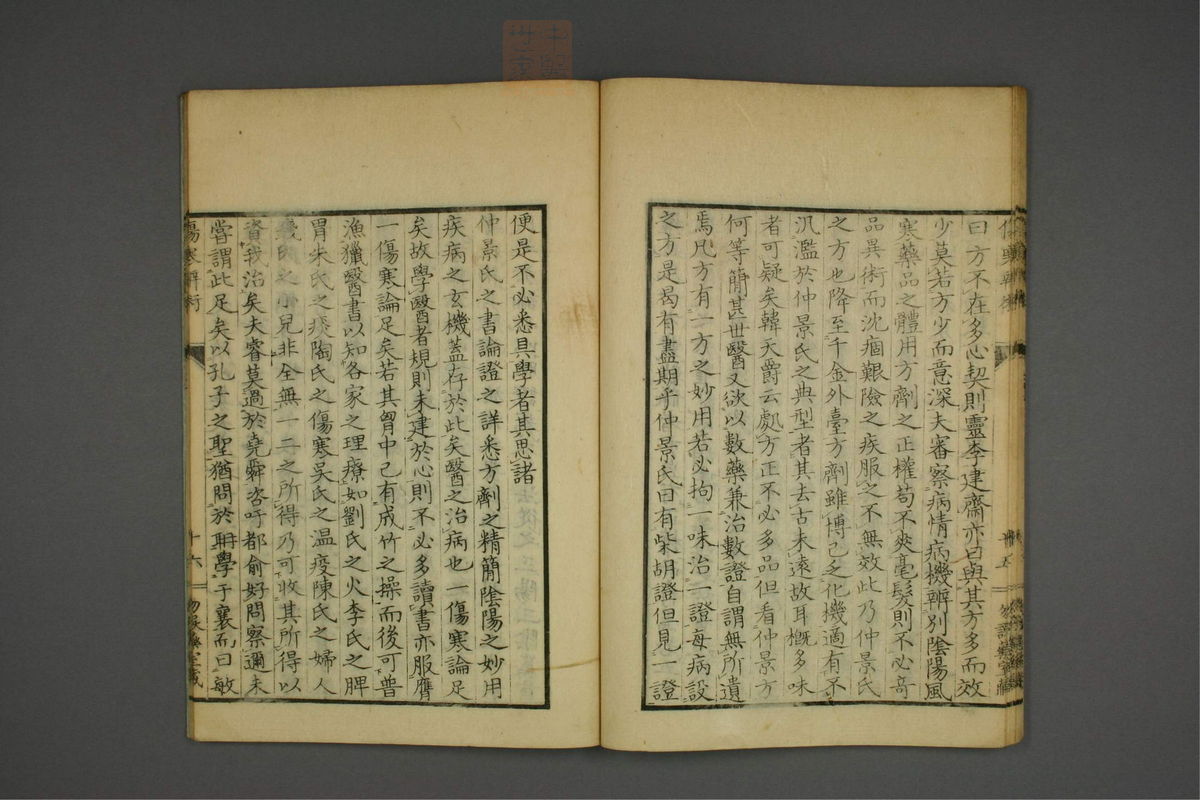 曰方不在多心契則靈李建齋亦曰與其方多而效
少莫若方少而意深夫審察病情病機辨別陰陽風
寒藥品之體用方劑之正權苟不爽毫髮則不必奇
品異術而沈痼艱險之疾服之不無效此乃仲景氏
之方也降至千金外臺方劑雖博已乏化機適有不
汎濫於仲景氏之典型者其去古未遠故耳概多味
者可疑矣韓天爵云處方正不必多品但看仲景方
何等簡甚世醫又欲以數藥兼治數證自謂無所遺
焉凡方有一方之妙用若必拘一味治一證每病設
之方是曷有盡期乎仲景氏曰有柴胡證但見一證
便是不必悉具學者其思諸
仲景氏之書論證之詳悉方劑之精簡陰陽之妙用
疾病之玄機蓋存於此矣醫之治病也一傷寒論足
矣故學醫者規則未建於心則不必多讀書亦服膺
一傷寒論足矣若其胷中已有成竹之操而後可普
漁獵醫書以知各家之理療如劉氏之火李氏之脾
胃朱氏之痰陶氏之傷寒吳氏之温疫陳氏之婦人
錢氏之小兒非全無一二之所得乃可收其所得以
資我治矣夫睿莫過於堯舜咨吁都俞好問察邇未
嘗謂此足矣以孔子之聖猶問於耼學于襄而曰敏
傷寒辨術
十六